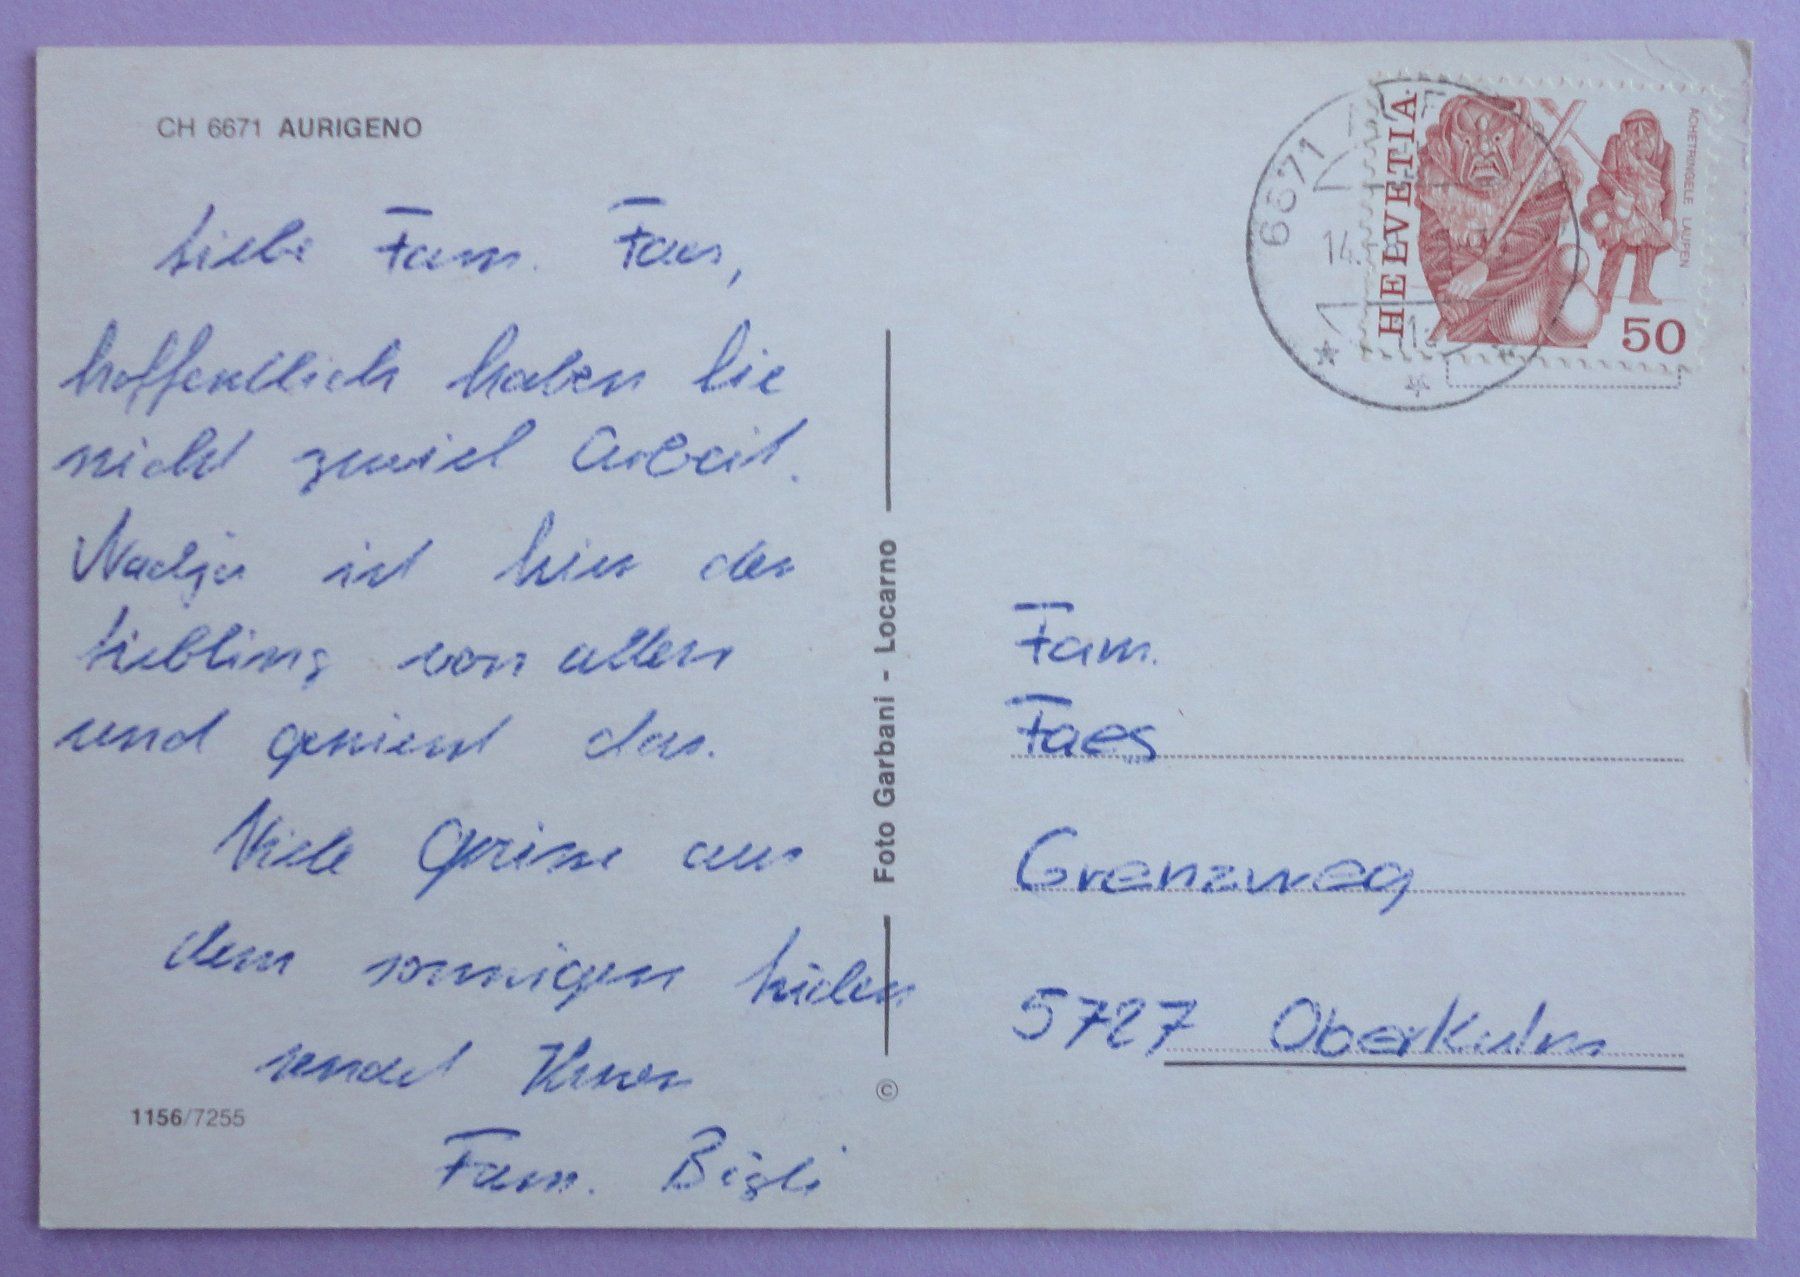 CH 6671 AURIGENO
Liebe Fam. Faes,
hoffentlich haben Sie
nicht zuviel Arbeit.
Nadja ist hier der
Liebling von allen
und geniesst das.
Viele Grüsse aus
dem sonnigen Süden
sendet Ihnen
Fam.
1156/7255
Foto Garbani - Locarno
©
6671
14.
HELVETIA
ACHETRINGELE LAUPEN
50
Fam.
Faes
Grenzweg
5727 Oberkulm